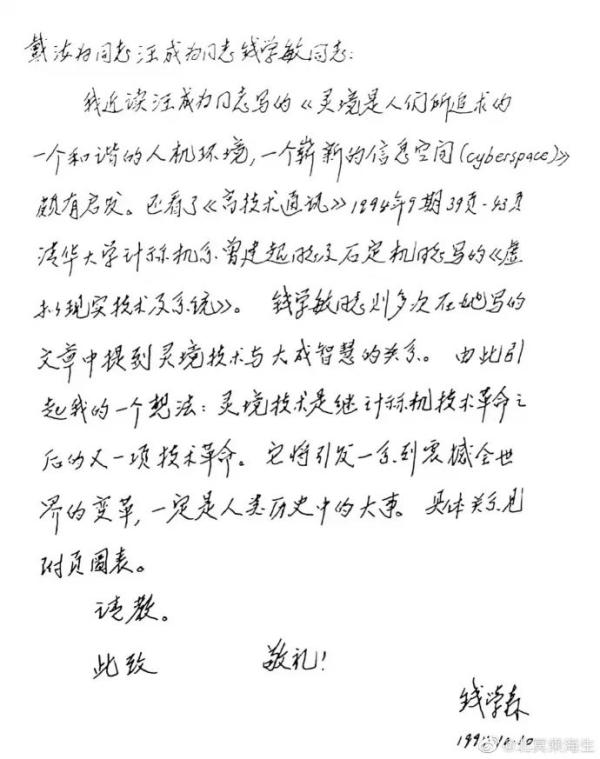 戴汝为同志汪成为同志钱学敏同志：
我近读汪成为同志写的《灵境是人们所追求的
一个和谐的人机环境，一个崭新的信息空间(cyberspace)》
颇有启发。还看了《高技术通讯》1994年9期39页-43页
清华大学计算机系曾建超同志及石定机同志写的《虚
拟现实技术及系统》。 钱学敏同志则多次在她写的
文章中提到灵境技术与大成智慧的关系。 由此引
起我的一个想法：灵境技术是继计算机技术革命之
后的又一项技术革命。它将引发一系列震撼全世
界的变革，一定是人类历史中的大事。具体关系见
附页圖表。
请教。
此致 敬礼！
钱学森
1994.10.10
@北冥乘海生